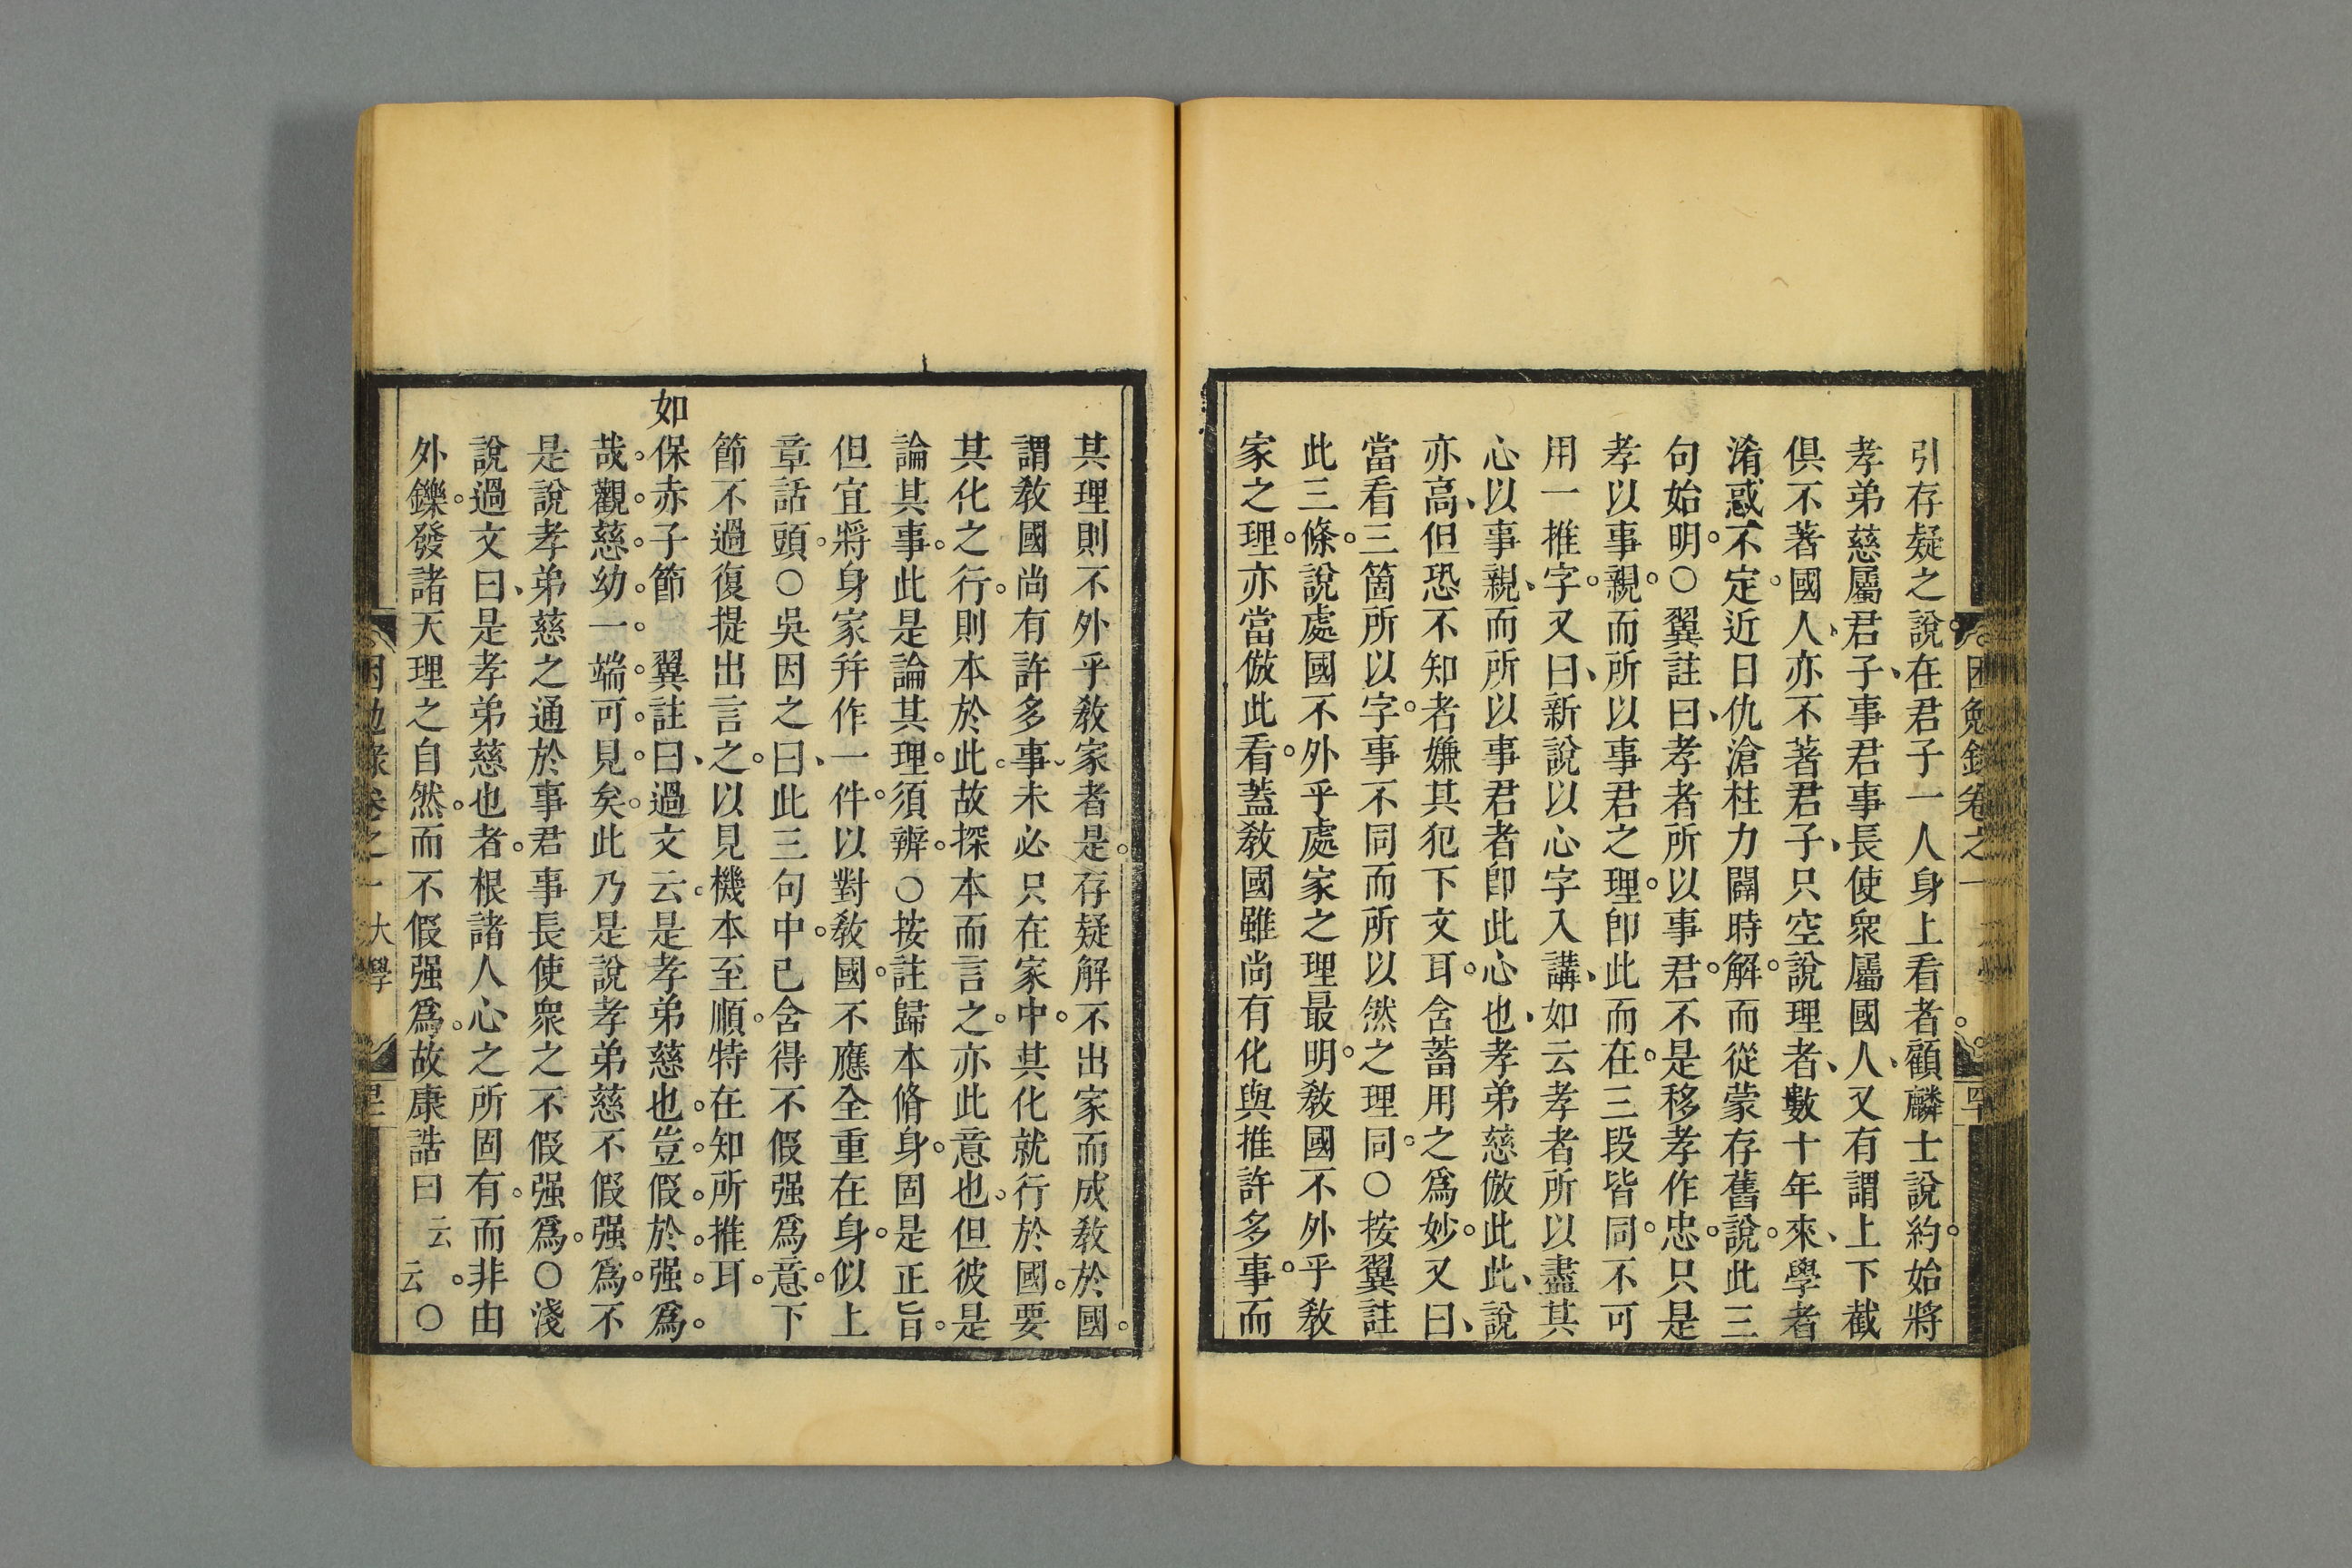 引存疑之說。在君子一人身上看者顧麟士說約。始將
孝弟慈屬君子、事君事長使衆屬國人、又有謂上下截
俱不著國人、亦不著君子、只空說理者、數十年來、學者
淆惑不定。近日仇滄柱力闢時解。而從蒙存舊說。此三
句始明。○翼註曰、孝者所以事君。不是移孝作忠。只是
孝以事親。而所以事君之理。卽此而在。三段皆同。不可
用一推字。又曰、新說以心字入講、如云孝者所以盡其
心以事親、而所以事君者卽此心也、孝弟慈倣此此、說
亦高、但恐不知者嫌其犯下文耳。含蓄用之爲妙。又曰、
當看三箇所以字。事不同而所以然之理同。○按翼註
此三條。說處國不外乎處家之理最明。敎國不外乎敎
家之理。亦當倣此看。蓋敎國雖尚有化與推許多事。而
困勉錄卷之一
其理則不外乎敎家者是。存疑解不出家而成敎於國。
謂敎國尚有許多事、未必只在家中。其化就行於國。要
其化之行。則本於此。故探本而言之。亦此意也。但彼是
論其事。此是論其理。須辨。○按註歸本脩身。固是正旨。
但宜將身家幷作一件。以對敎國。不應全重在身。似上
章話頭。○吳因之曰、此三句中。已含得不假强爲意。下
節不過復提出言之。以見機本至順。特在知所推耳。
如保赤子節 翼註曰、過文云。是孝弟慈也。豈假於强爲。
哉。觀慈幼一端。可見矣。此乃是說孝弟慈不假强爲。不
是說孝弟慈之通於事君事長使衆之不假强爲。○淺
說過文曰、是孝弟慈也者。根諸人心之所固有。而非由
外鑠。發諸天理之自然。而不假强爲。故康誥曰云云。○
困勉錄卷之一 大學